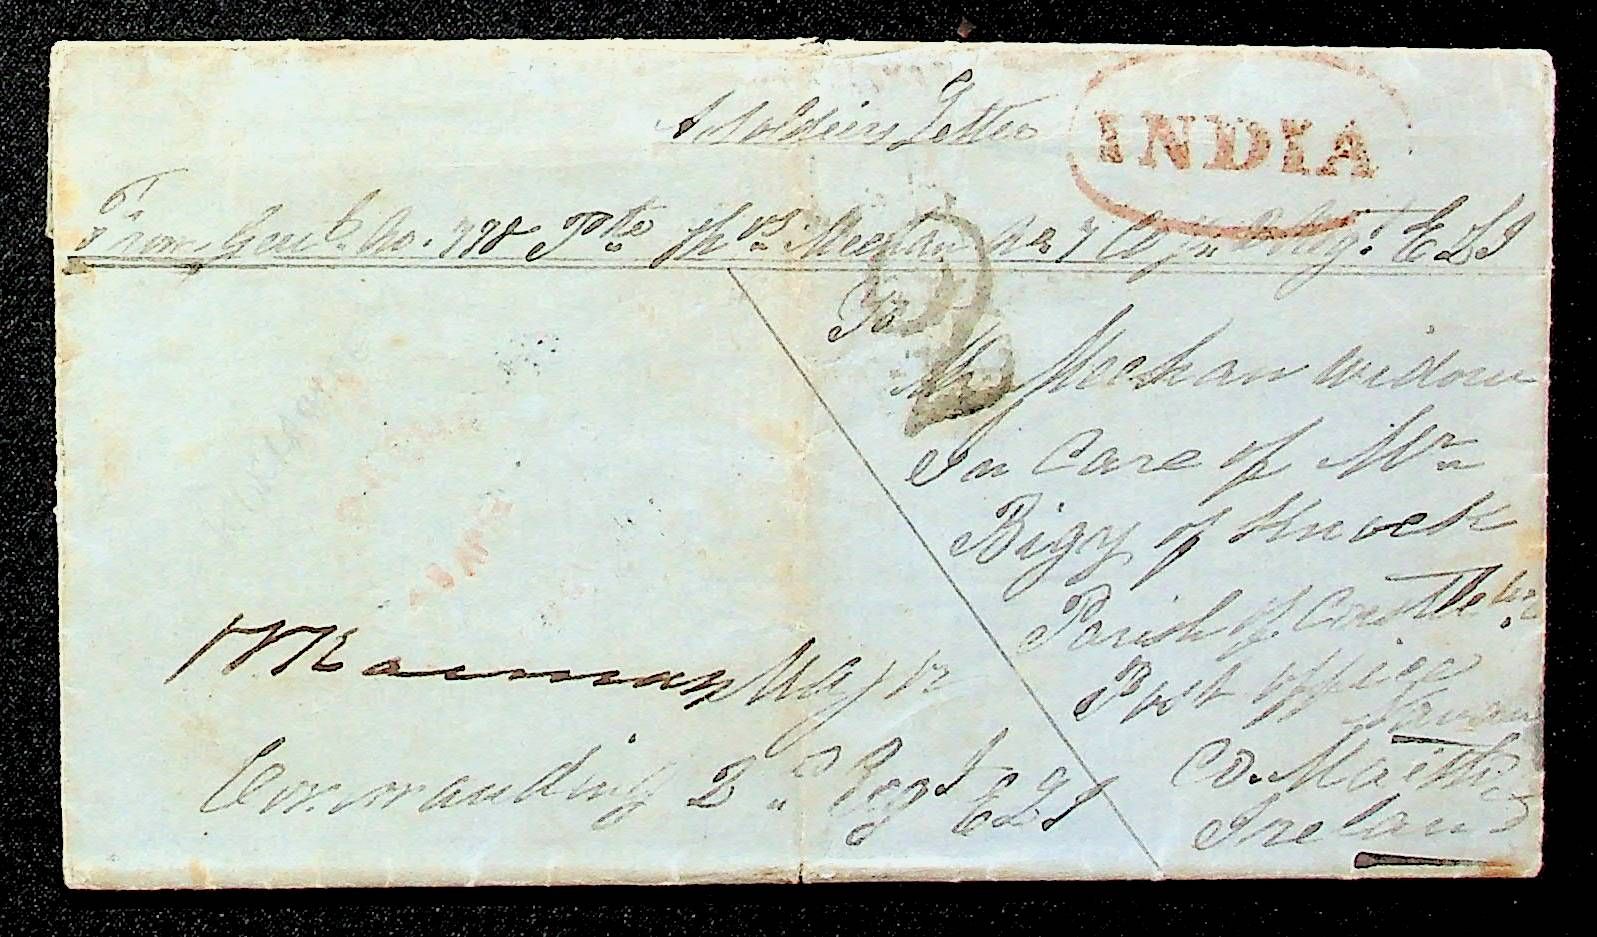 A Soldiers Letter
INDIA
From No. 778 Meehan No 7 Coy 2 Regt E L I
2
To
Meehan widow
In Care of Mr
Bigy of Knock
Parish of Castle
Post office
Navan
Co. Maeth
Ireland
Major
Commanding 2nd Regt E L I